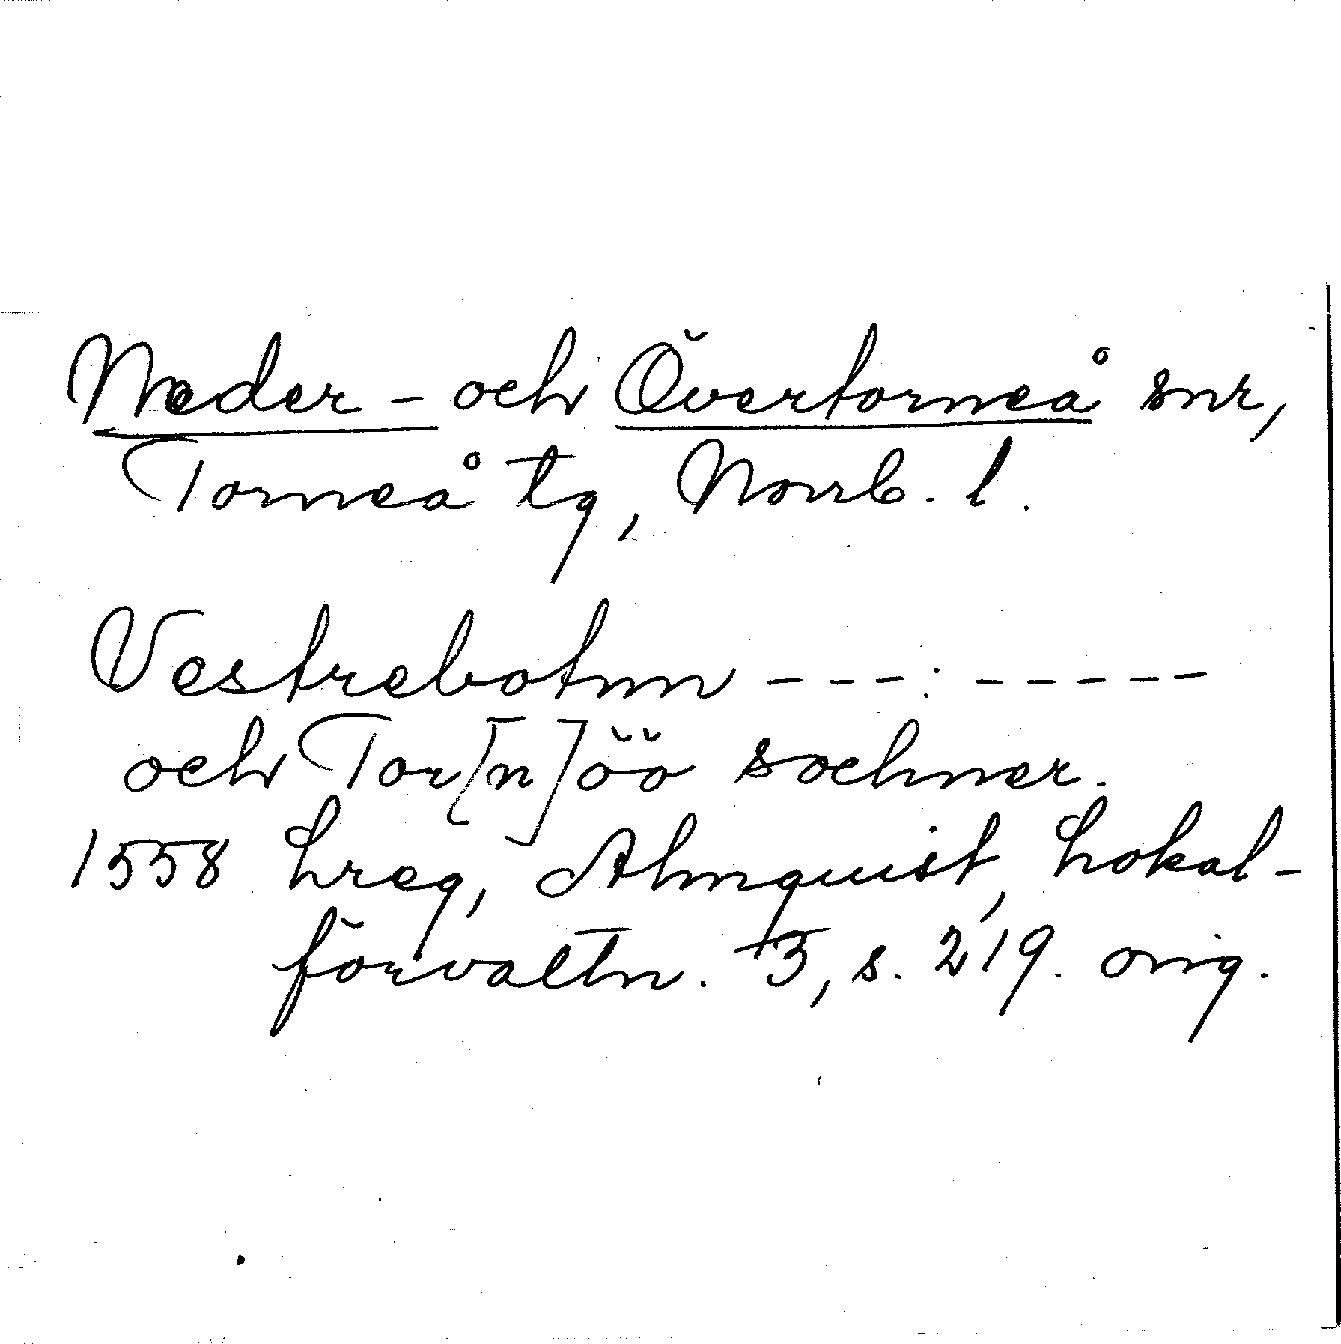 Neder- och Övertorneå snr,
Torneå tg, Norrb. l.
Vestrebotnn - - - : - - - - -
och Tor[n]öö sochner.
1558 Lreg, Almquist, Lokal-
förvaltn. 3, s. 219. orig.